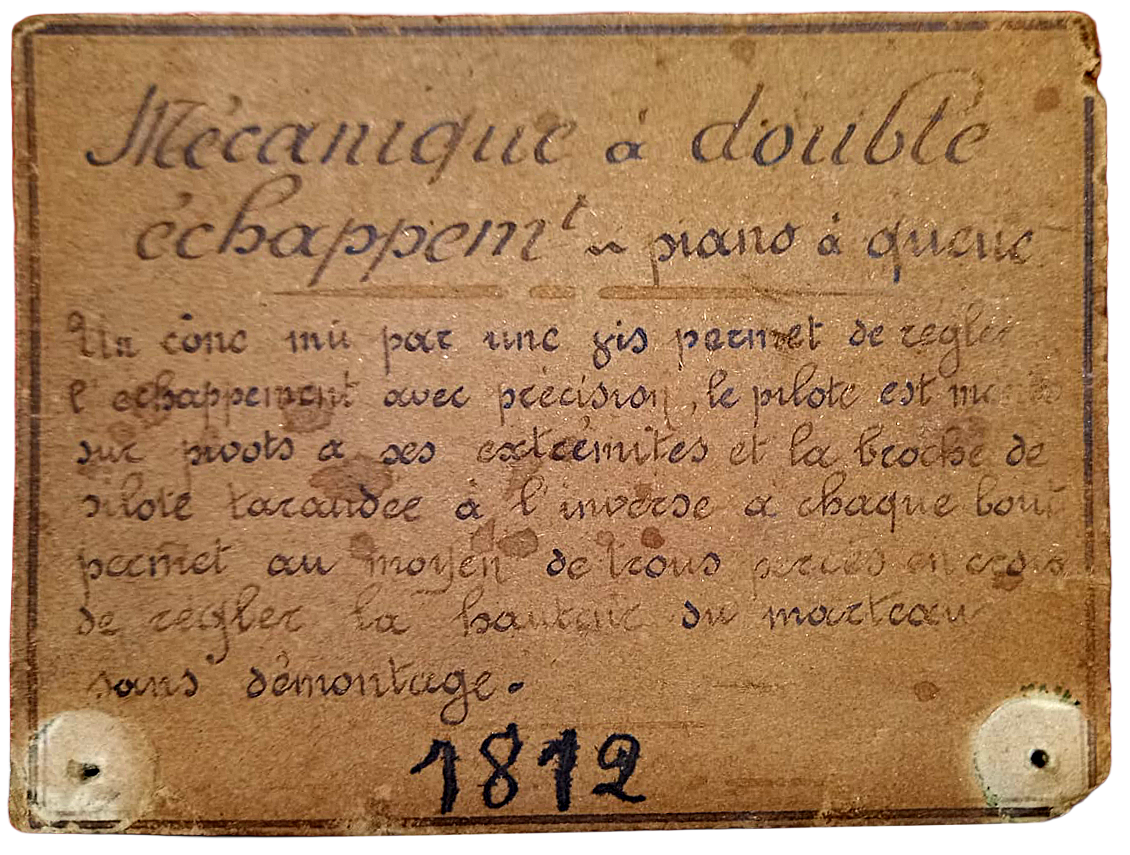 Mécanique à double
échappemt piano à queue
Un cone mû par une vis permet de régler
l'echappement avec précision, le pilote est
sur pivots a ses extrémites et la broche de
pilote taraudée à l'inverse a chaque bout
permet au moyen de trous percés en croix
de régler la hauteur du marteau
sans démontage.
1812